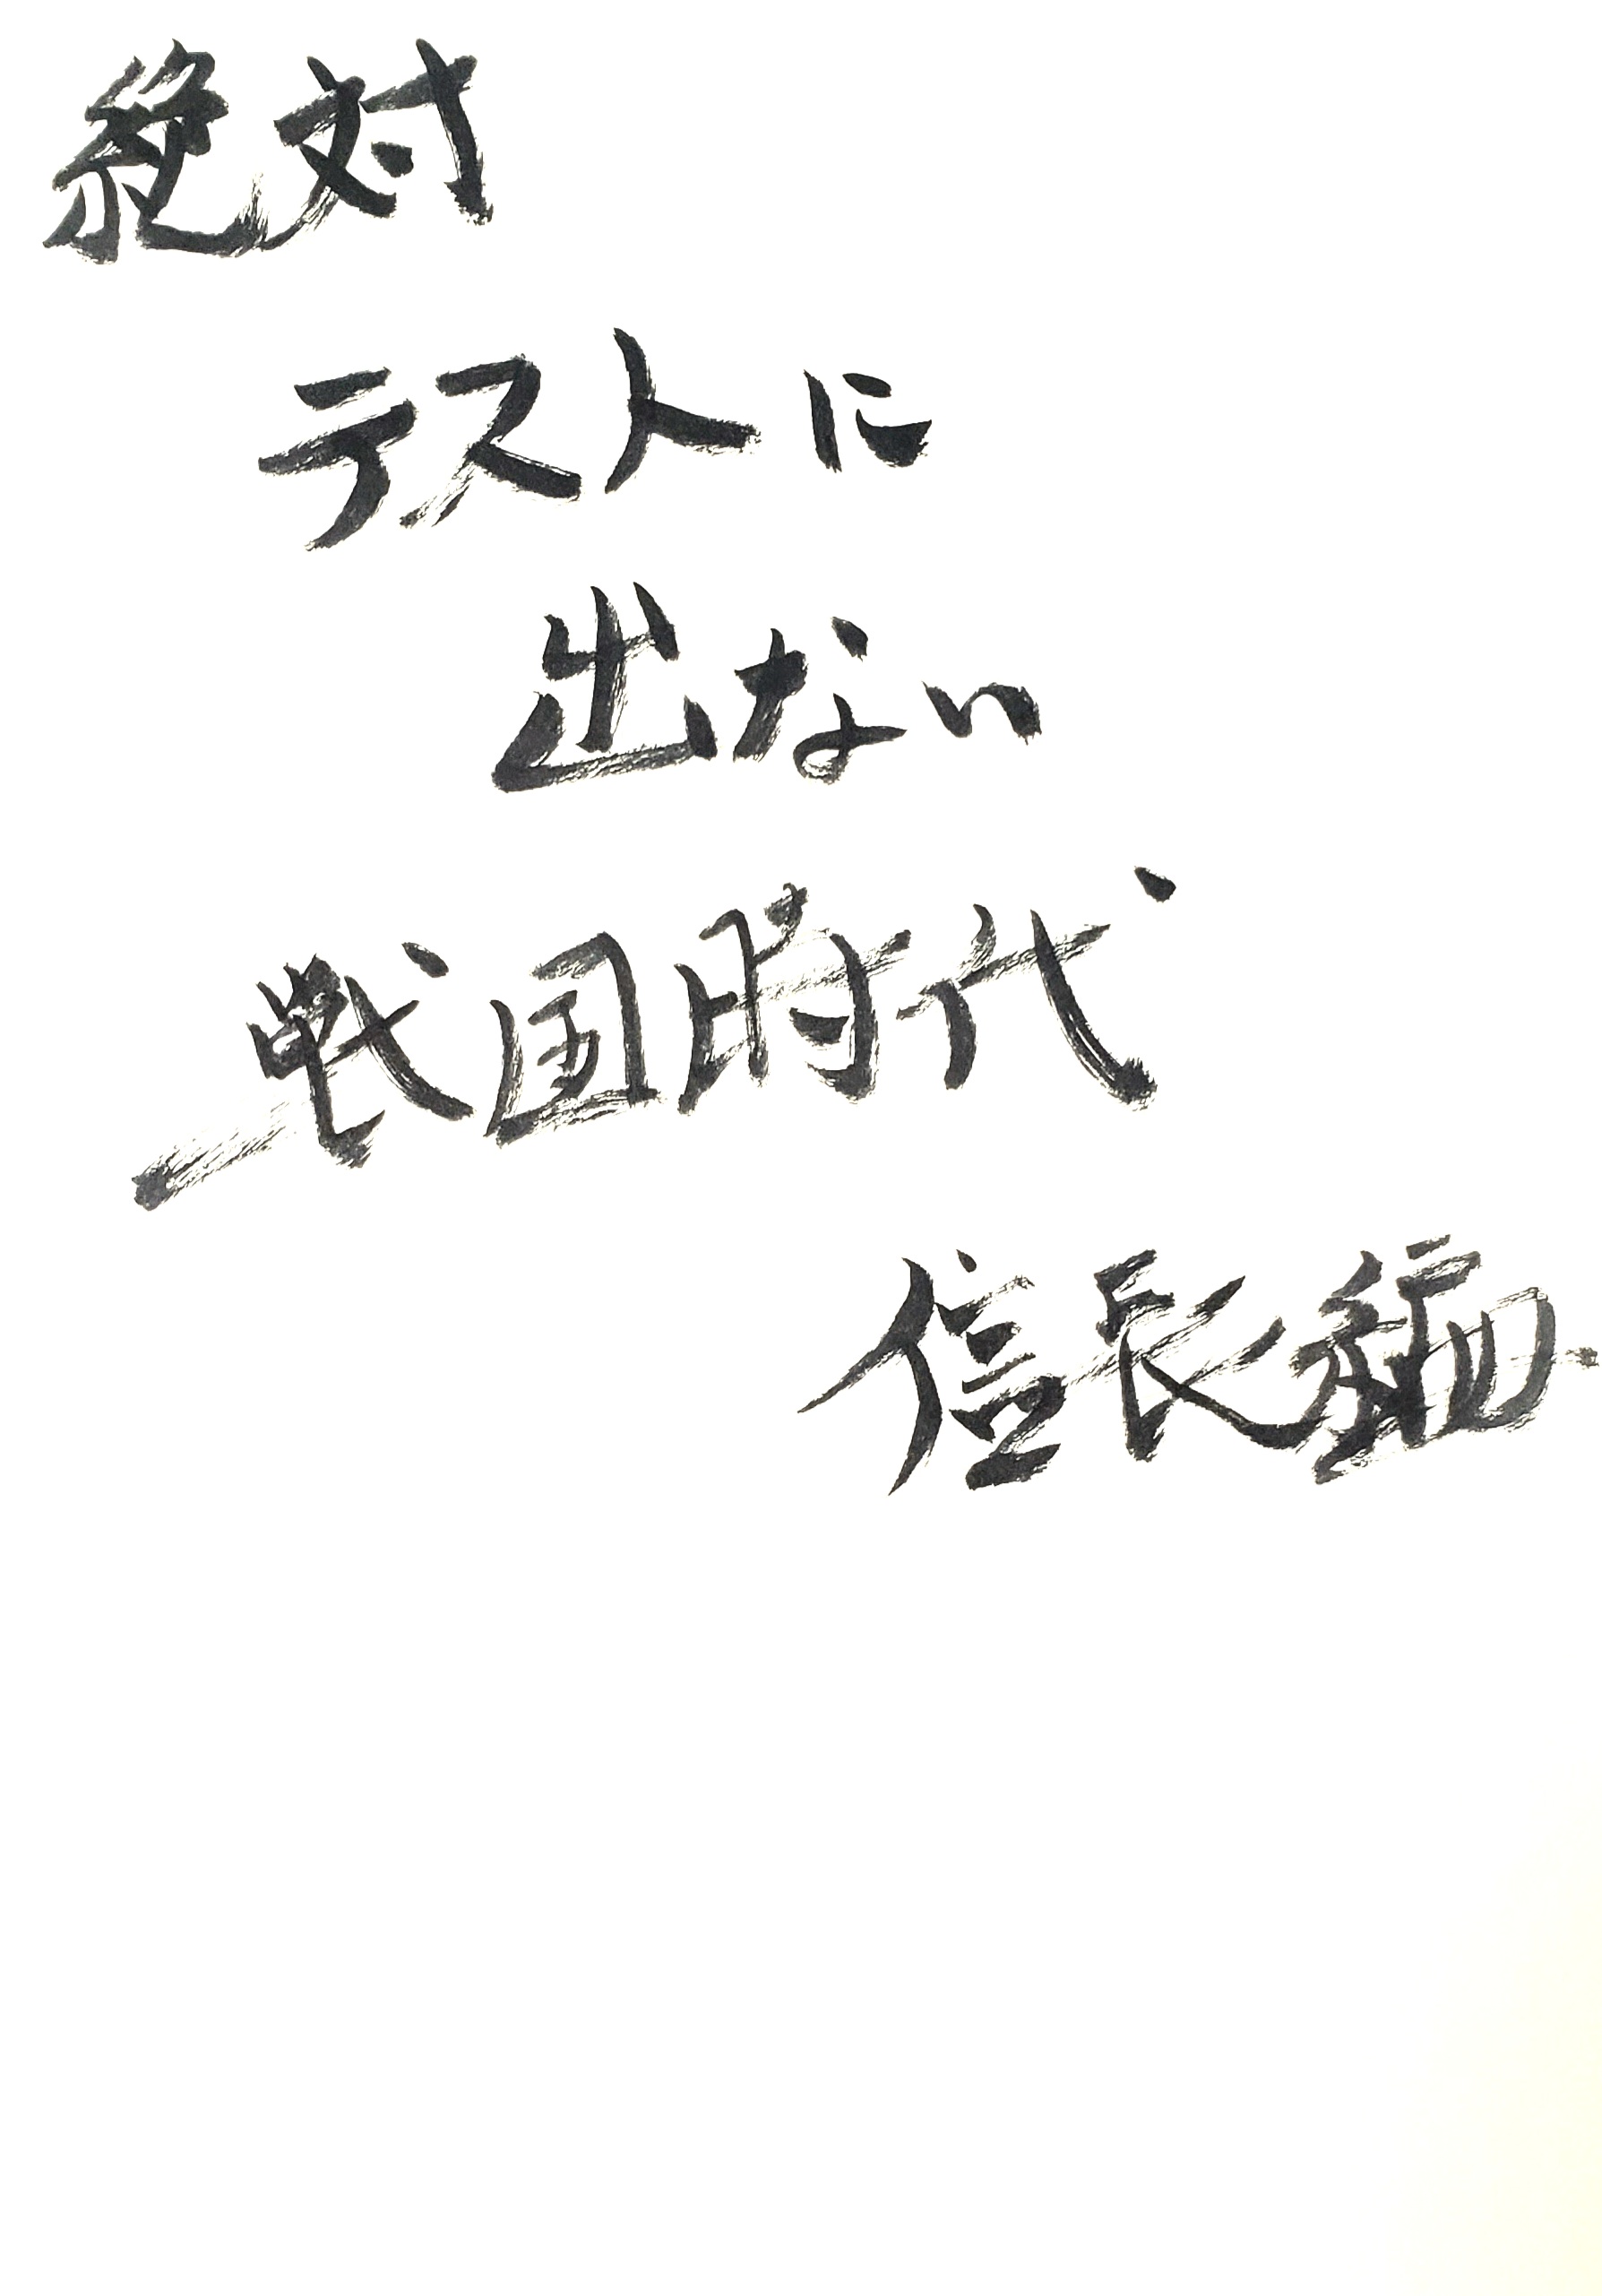 絶対
テストに
出ない
戦国時代
信長編